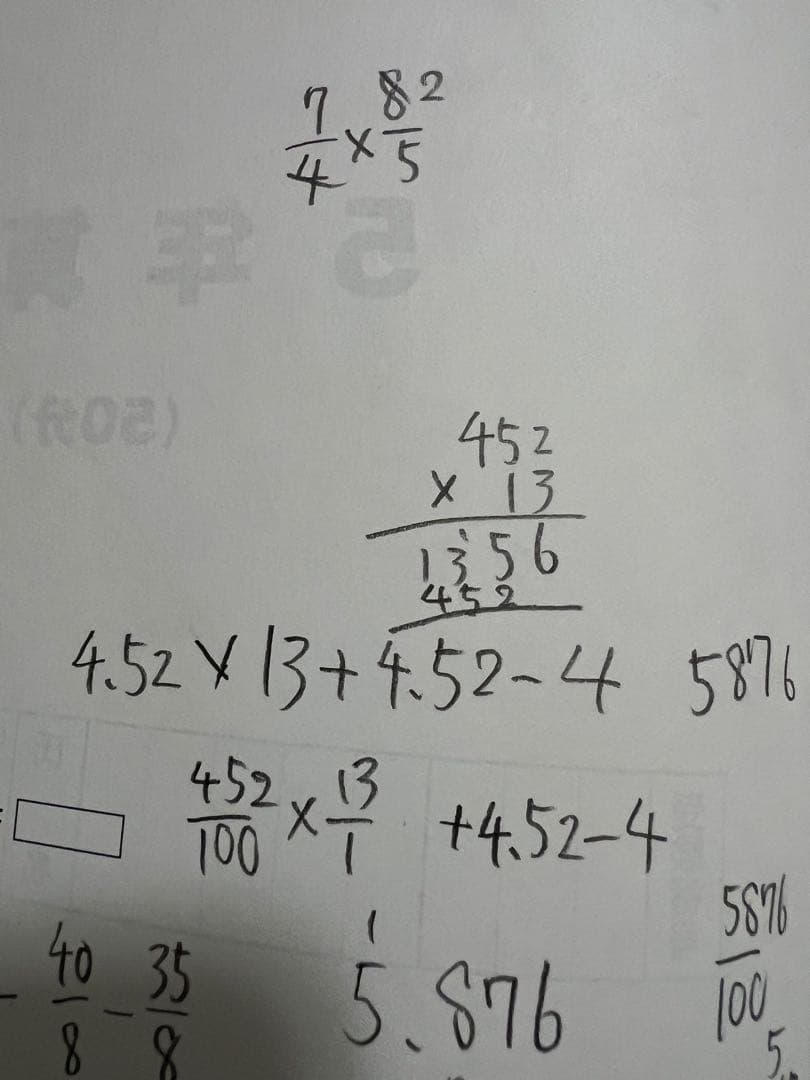 7/4 × 82/5
5 年 算
(50分)
452
× 13
1356
452
4.52 × 13 + 4.52 - 4 5876
452/100 × 13/1 + 4.52 - 4
5876/100
1
- 40/8 - 35/8 5.876
5.